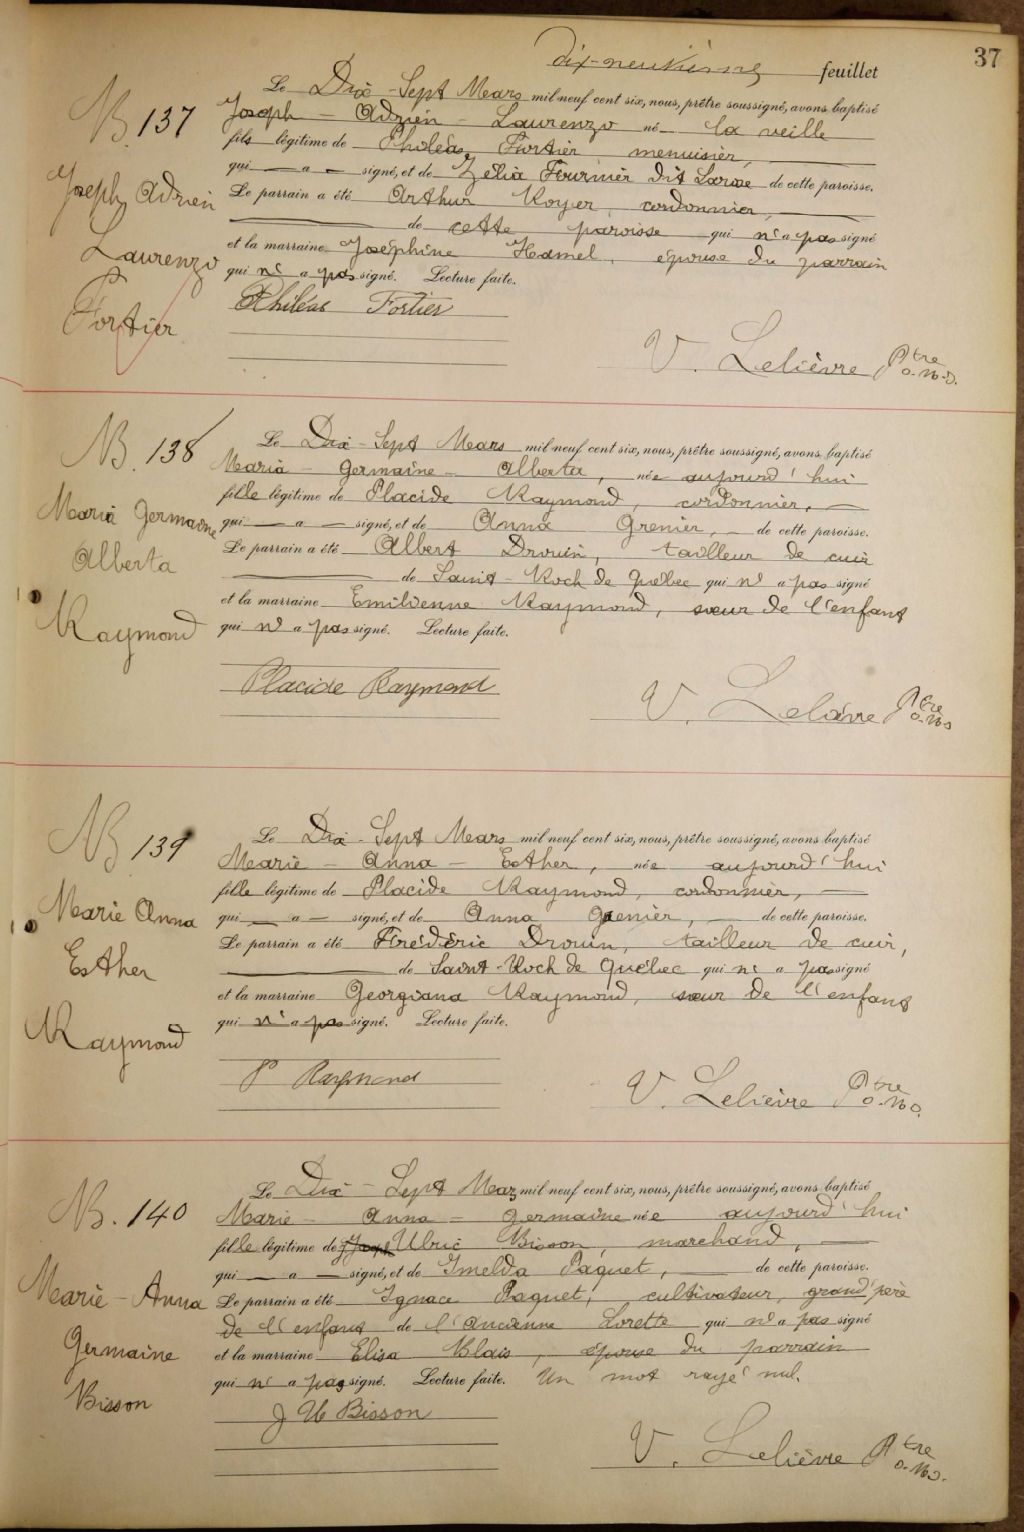 dix-neuvième feuillet
37
B. 137
Joseph Adrien
Laurenzo
Fortier
Le Dix-Sept Mars mil neuf cent six, nous, prêtre soussigné, avons baptisé
Joseph - Adrien - Laurenzo né la veille
fils légitime de Philéas Fortier menuisier,
qui — a — signé, et de Zélia Fournier dit Larose de cette paroisse.
Le parrain a été Arthur Royer, cordonnier,
de cette paroisse qui n'a pas signé
et la marraine Joséphine Hamel, épouse du parrain
qui n' a pas signé. Lecture faite.
Philéas Fortier
V. Lelièvre Ptre
o.m.i.
B. 138
Maria Germaine
Alberta
Raymond
Le Dix-Sept Mars mil neuf cent six, nous, prêtre soussigné, avons baptisé
Maria - Germaine - Alberta, née aujourd'hui
fille légitime de Placide Raymond, cordonnier, —
qui — a — signé, et de Anna Grenier, — de cette paroisse.
Le parrain a été Albert Drouin, tailleur de cuir
de Saint-Roch de Québec qui n' a pas signé
et la marraine Emilienne Raymond, sœur de l'enfant
qui n' a pas signé. Lecture faite.
Placide Raymond
V. Lelièvre Ptre
o.m.i.
B 139
Marie Anna
Esther
Raymond
Le Dix-Sept Mars mil neuf cent six, nous, prêtre soussigné, avons baptisé
Marie - Anna - Esther, née aujourd'hui
fille légitime de Placide Raymond, cordonnier, —
qui — a — signé, et de Anna Grenier, — de cette paroisse.
Le parrain a été Frédéric Drouin, tailleur de cuir,
de Saint-Roch de Québec qui n' a pas signé
et la marraine Georgiana Raymond, sœur de l'enfant
qui n' a pas signé. Lecture faite.
P Raymond
V. Lelièvre Ptre
o.m.i.
B. 140
Marie - Anna
Germaine
Bisson
Le Dix-Sept Mars mil neuf cent six, nous, prêtre soussigné, avons baptisé
Marie - Anna - Germaine née aujourd'hui
fille légitime de Joseph Ulric Bisson, marchand, —
qui — a — signé, et de Imelda Paquet, — de cette paroisse.
Le parrain a été Ignace Paquet, cultivateur, grand'père
de l'enfant de l'Ancienne Lorette qui n'a pas signé
et la marraine Elisa Blais, épouse du parrain
qui n' a pas signé. Lecture faite. Un mot rayé nul.
J U Bisson
V. Lelièvre Ptre
o.m.i.